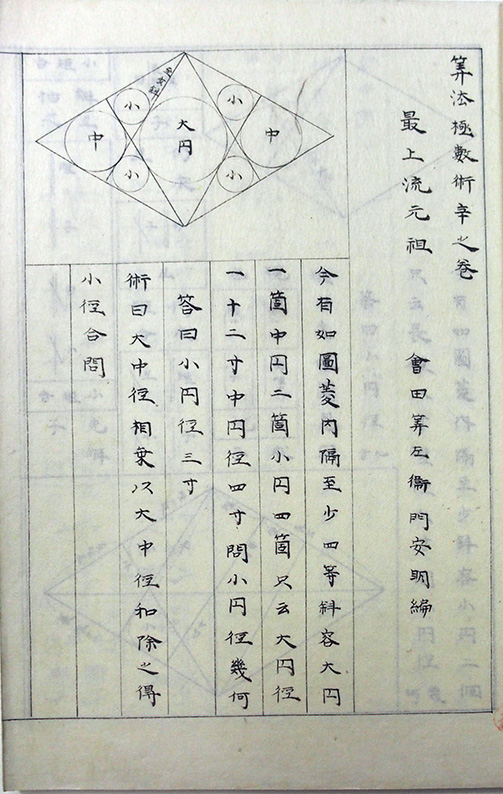 算法極數術辛之巻
最上流元祖　會田算左衞門安明編
今有如圖菱内隔至少四等斜容大円
一箇中円二箇小円四箇只云大円径
一十二寸中円径四寸問小円径幾何
答曰小円径三寸
術曰大中径相乗以大中径和除之得
小径合問
至少斜
小
小
中
大円
中
小
小